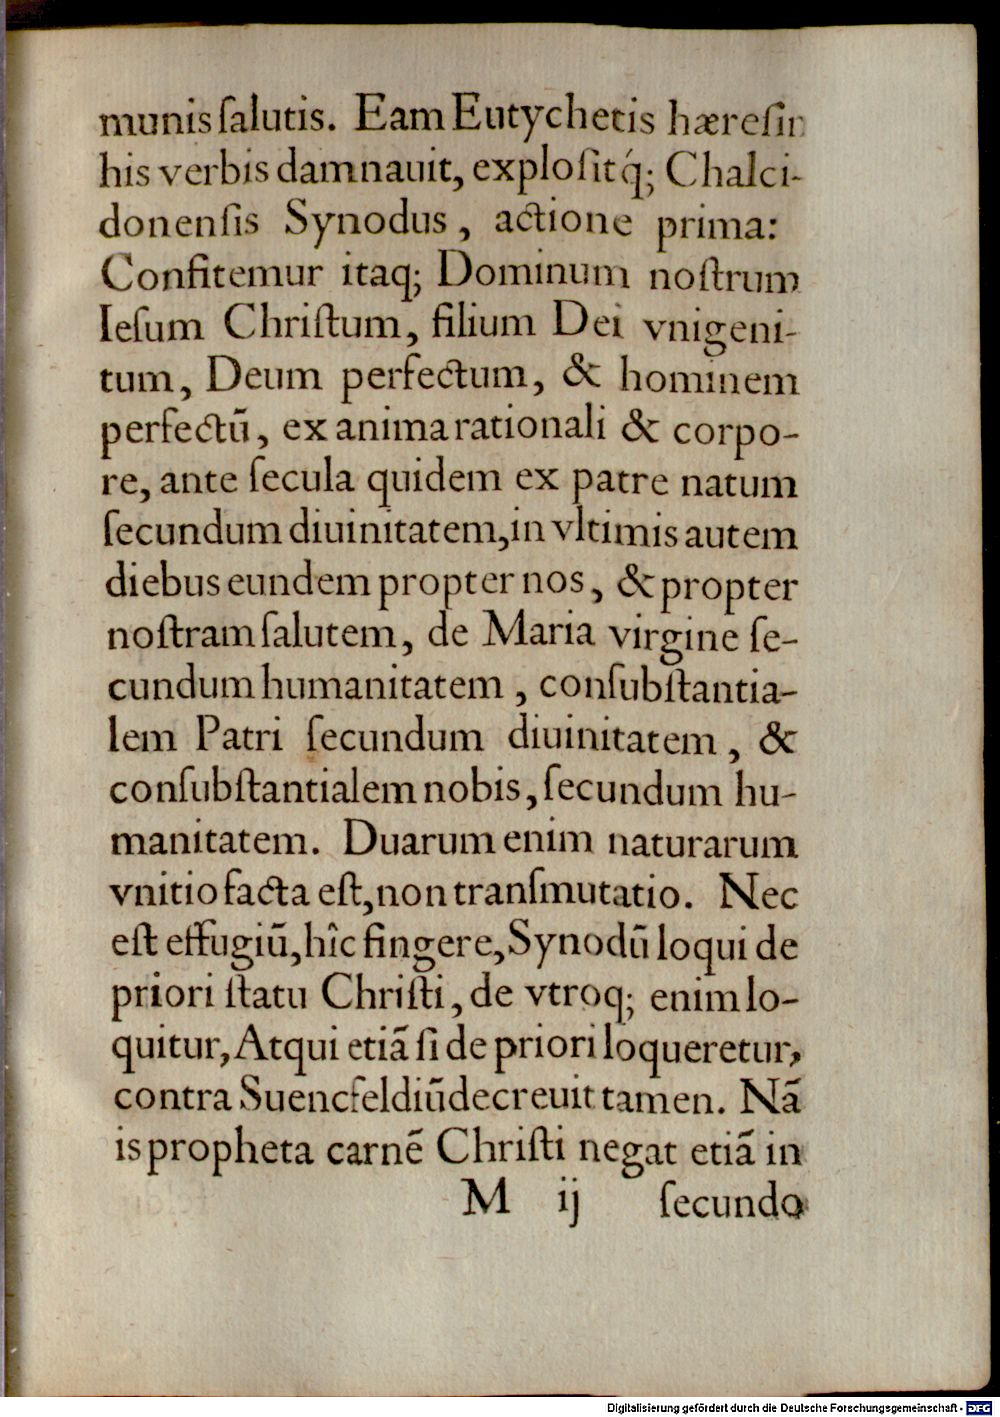 munis ſalutis. Eam Eutychetis hæreſin
his verbis damnauit, exploſitq́; Chalci-
donenſis Synodus, actione prima:
Confitemur itaq; Dominum noſtrum
Ieſum Chriſtum, filium Dei vnigeni-
tum, Deum perfectum, & hominem
perfectū, ex anima rationali & corpo-
re, ante ſecula quidem ex patre natum
ſecundum diuinitatem, in vltimis autem
diebus eundem propter nos, & propter
noſtram ſalutem, de Maria virgine ſe-
cundum humanitatem, conſubſtantia-
lem Patri ſecundum diuinitatem, &
conſubſtantialem nobis, ſecundum hu-
manitatem. Duarum enim naturarum
vnitio facta eſt, non tranſmutatio. Nec
eſt effugiū, hîc fingere, Synodū loqui de
priori ſtatu Chriſti, de vtroq; enim lo-
quitur, Atqui etiā ſi de priori loqueretur,
contra Suencfeldiū decreuit tamen. Nā
is propheta carnē Chriſti negat etiā in
M ij ſecundo
Digitalisierung gefördert durch die Deutsche Forschungsgemeinschaft - DFG